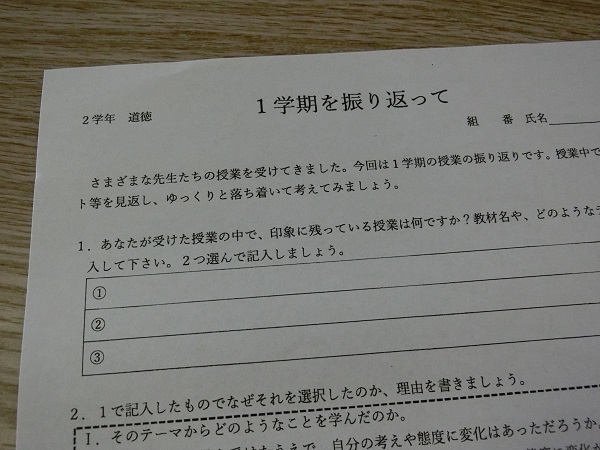 1学期を振り返って
2学年 道徳
組 番 氏名
さまざまな先生たちの授業を受けてきました。今回は1学期の授業の振り返りです。授業中で
ト等を見返し、ゆっくりと落ち着いて考えてみましょう。
1.あなたが受けた授業の中で、印象に残っている授業は何ですか?教材名や、どのようなテ
入して下さい。2つ選んで記入しましょう。
①
②
③
2.1で記入したものでなぜそれを選択したのか、理由を書きましょう。
I.そのテーマからどのようなことを学んだのか。
自分の考えや態度に変化はあっただろうか。